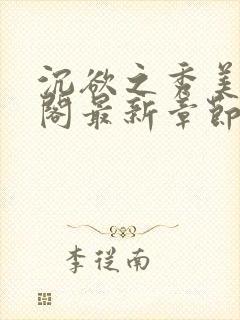 沉欲之秀美
阁最新章节
李从南